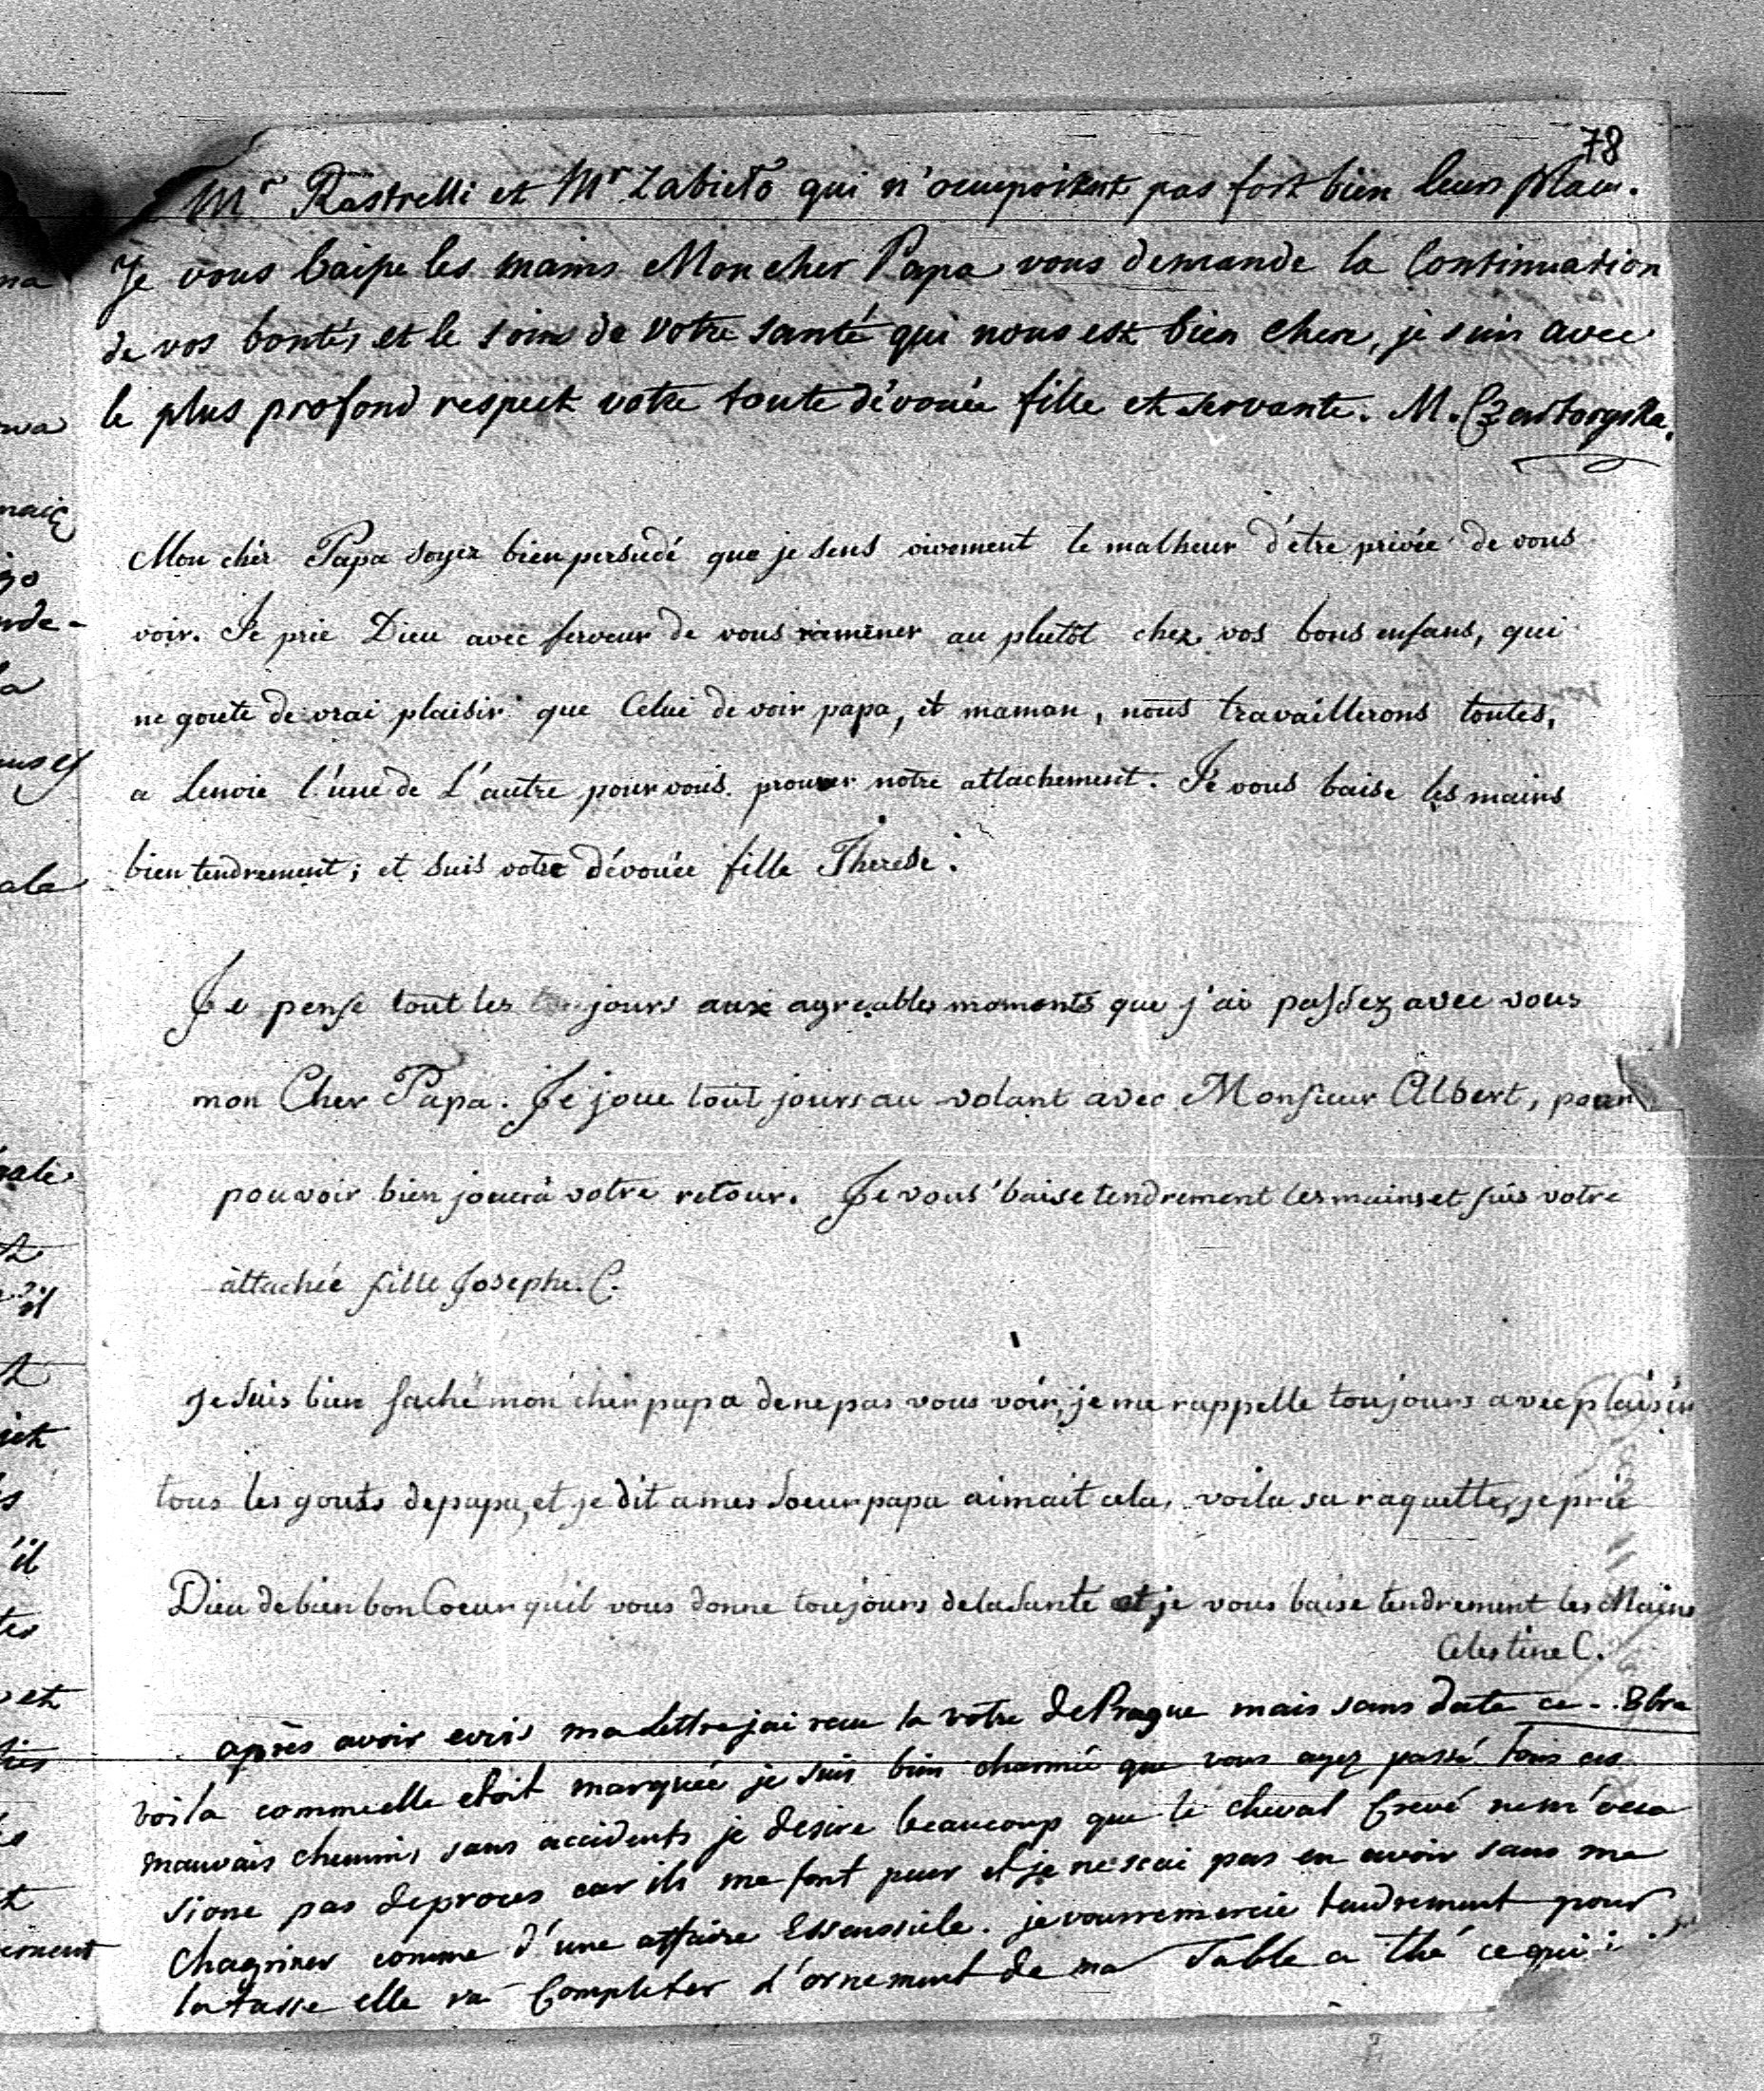 78
Mr Rastrelli et Mr Zabieło qui n'ocupoitent pas fort bien leurs place.
Je vous baise les mains Mon cher Papa vous demande la Continuation
de vos bontés et le soins de votre santé qui nous est bien chere, je suis avec
le plus profond respect votre toute dévouée fille et servante. M. Czartoryska.
Mon chér Papa soyez bien persudé que je sens vivement le malheur d'étre privée de vous
voir. Je prie Dieu avec ferveur de vous raméner au plutôt chez vos bons enfans, qui
ne goute de vrai plaisir que Celui de voir papa, et maman, nous travaillerons toutes,
a Lenvie l'une de L'autre pour vous prouver notre attachement. Je vous baise les mains
bien tendrement; et suis votre dévouée fille Therese.
Je pense tout les jours aux agreables moments que j'ai passez avec vous
mon Cher Papa. Je joue tout jours au volant avec Monsieur Albert, pour
pouvoir bien jouer à votre retour. Je vous baise tendrement les mains et suis votre
attachée fille Josephe. C.
Je suis bien faché mon cher papa de ne pas vous voir, je me rappelle toujours avec plaisir
tous les gouts de papa, et je dit a mes Soeur papa aimait cela, voila sa raquette, je prie
Dieu de bien bon Coeur quil vous donne toujours de la Sante et je vous baise tendrement les Mains
Celestine C.
après avoir ecris ma Lettre jai recu la votre de Prague mais sans date ce - . 8bre
voila comme elle etoit marquée je suis bien charmée que vous ayez passé tous ces
mauvais chemins sans accidents je desire beaucoup que le cheval Crevé nem'oca
sione pas de proces car ils me font peur et je ne scai pas en avoir sans me
chagriner comme d'une affaire Essensiele. je vous remercie tendrement pour
la tasse elle va Completer L'ornement de ma Table a thé ce qui